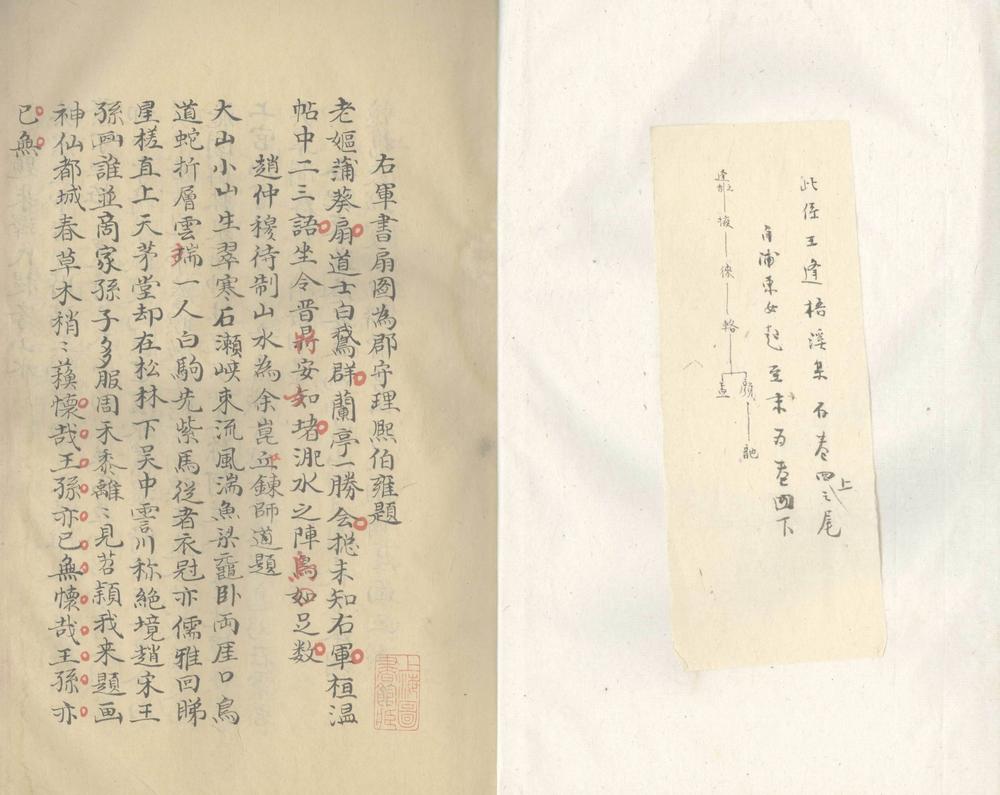 右軍書扇圖為郡守理熙伯雍題
老嫗蒲葵扇道士白鵞群蘭亭一勝会摠未知右軍桓温
帖中二三語坐令晋將安如堵淝水之陣烏如足数
趙仲穆待制山水為余崑丘鍊師道題
大山小山生翠寒石瀬峡束流風湍魚梁黿卧両厓口鳥
道蛇折層雲端一人白駒先紫馬従者衣冠亦儒雅回睇
星槎直上天茅堂却在松林下吴中雲川称絶境趙宋王
孫画誰並商家孫子多服周禾黍離〻見苕頴我来題画
神仙都城春草木稍〻蘋懷哉王孫亦已無懷哉王孫亦
已無
上海圖書館藏
此係王逢梧溪集 石卷四上之尾
角浦東女起至末為卷四下
逢
掖
徐
輅
顔
盖
訑